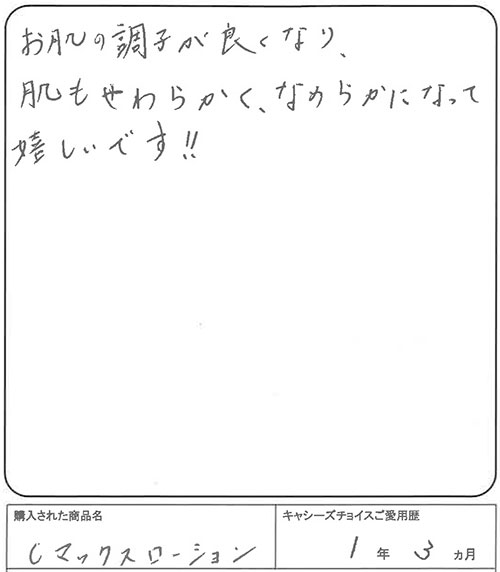 お肌の調子が良くなり、
肌もやわらかく、なめらかになって
嬉しいです!!
購入された商品名
Cマックスローション
キャシーズチョイスご愛用歴
1年3ヵ月